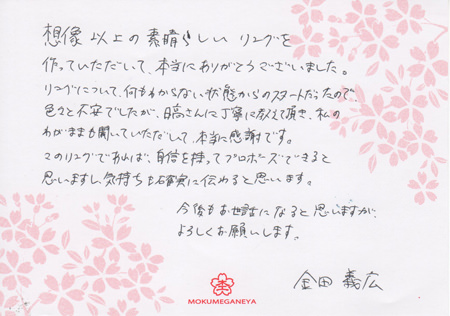 想像以上の素晴らしいリングを
作っていただいて、本当にありがとうございました。
リングについて、何もわからない状態からのスタートだったので、
色々と不安でしたが、日高さんに丁寧に教えて頂き、私の
わがままも聞いていただいて、本当に感謝です。
このリングであれば、自信を持ってプロポーズできると
思いますし、気持ちも確実に伝わると思います。
今後もお世話になると思いますが、
よろしくお願いします。
金田 義広
MOKUMEGANEYA